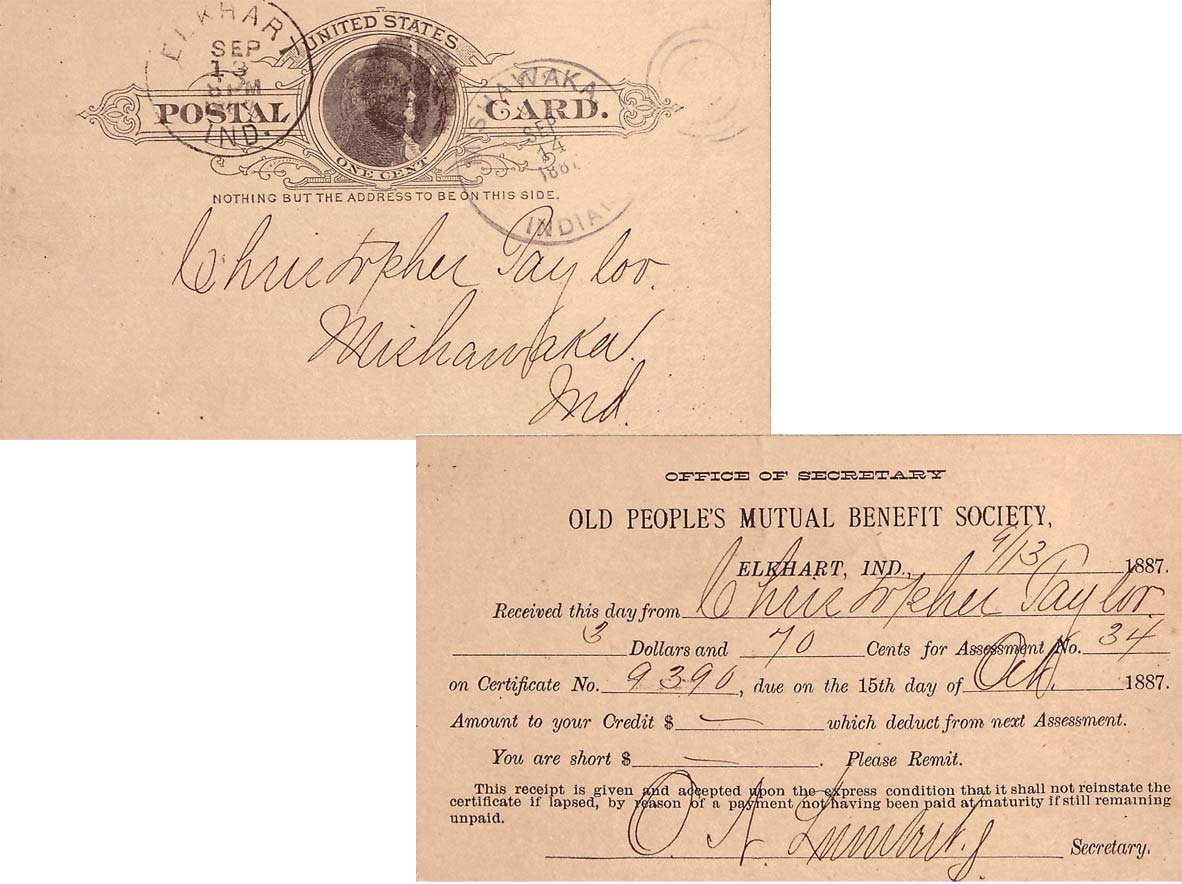 ELKHART
SEP
13
8PM
IND.
UNITED STATES
POSTAL CARD.
ONE CENT
SHAWAKA
SEP
14
188
INDIA
NOTHING BUT THE ADDRESS TO BE ON THIS SIDE.
Christopher Taylor.
Mishawaka.
Ind.
OFFICE OF SECRETARY
OLD PEOPLE'S MUTUAL BENEFIT SOCIETY,
ELKHART, IND., 9/13 1887.
Received this day from Christopher Taylor
3 Dollars and 70 Cents for Assessment No. 34
on Certificate No. 9390, due on the 15th day of Oct. 1887.
Amount to your Credit $ — which deduct from next Assessment.
You are short $ — . Please Remit.
This receipt is given and accepted upon the express condition that it shall not reinstate the
certificate if lapsed, by reason of a payment not having been paid at maturity if still remaining
unpaid.
Secretary.